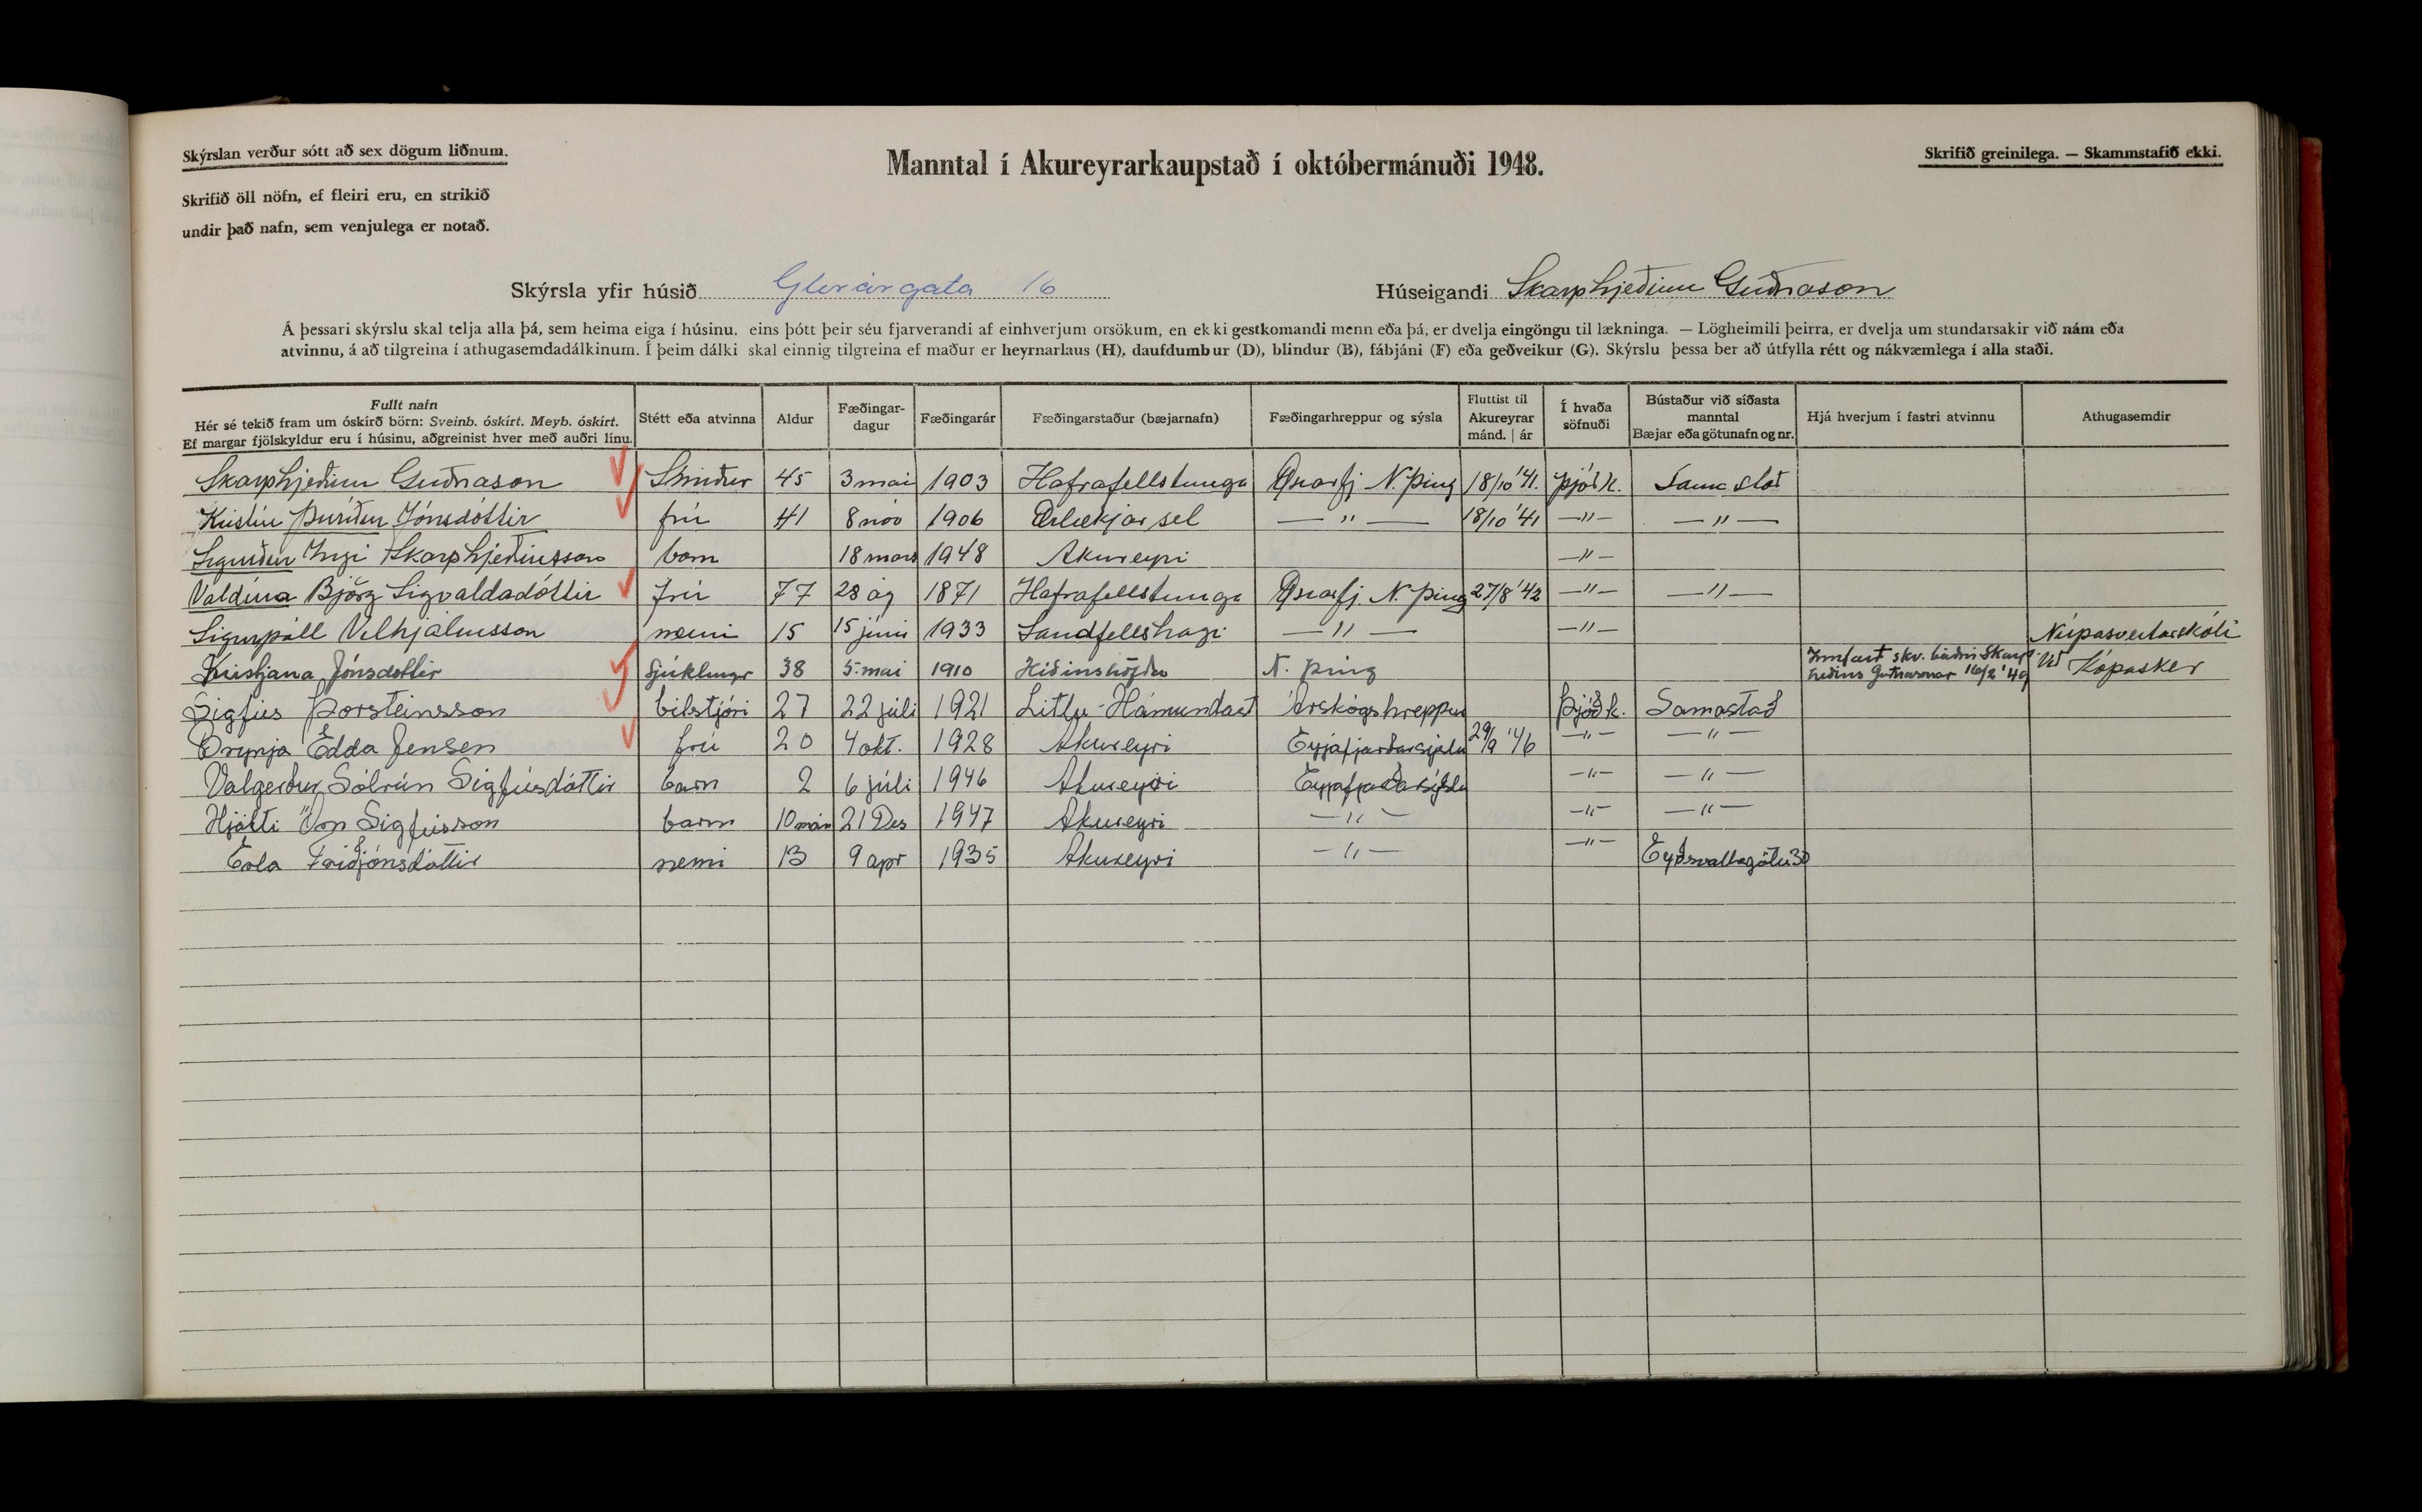 Skýrslan verður sótt að sex dögum liðnum.
Skrifið öll nöfn, ef fleiri eru, en strikið
undir það nafn, sem venjulega er notað.
Manntal í Akureyrarkaupstað í októbermánuði 1948.
Skrifið greinilega. — Skammstafið ekki.
Skýrsla yfir húsið Glerárgata 16
Húseigandi Skarphjeðinn Guðnason
Á þessari skýrslu skal telja alla þá, sem heima eiga í húsinu, eins þótt þeir séu fjarverandi af einhverjum orsökum, en ekki gestkomandi menn eða þá, er dvelja eingöngu til lækninga. — Lögheimili þeirra, er dvelja um stundarsakir við nám eða
atvinnu, á að tilgreina í athugasemdadálkinum. Í þeim dálki skal einnig tilgreina ef maður er heyrnarlaus (H), daufdumbur (D), blindur (B), fábjáni (F) eða geðveikur (G). Skýrslu þessa ber að útfylla rétt og nákvæmlega í alla staði.
Fullt nafn
Hér sé tekið fram um óskírð börn: Sveinb. óskírt. Meyb. óskírt.
Ef margar fjölskyldur eru í húsinu, aðgreinist hver með auðri línu.
Stétt eða atvinna
Aldur
Fæðingar-
dagur
Fæðingarár
Fæðingarstaður (bæjarnafn)
Fæðingarhreppur og sýsla
Fluttist til
Akureyrar
mánd. | ár
Í hvaða
söfnuði
Bústaður við síðasta
manntal
Bæjar eða götunafn og nr.
Hjá hverjum í fastri atvinnu
Athugasemdir
Skarphjeðinn Guðnason Smiður 45 3 mai 1903 Hafrafellstunga Öxarfj N. Þing 18/10 '41. Þjóðk. Sama stað
Kristín Þuríður Jónsdóttir frú 41 8 nóv 1906 Ærlækjarsel — " — 18/10 '41 — " — — " —
Sigurður Ingi Skarphjeðinsson barn 18 mars 1948 Akureyri — " —
Valdína Björg Sigvaldadóttir frú 77 28 ág 1871 Hafrafellstunga Öxarfj. N. Þing 27/8 '42 — " — — " —
Sigurpáll Vilhjálmsson nemi 15 15 júní 1933 Sandfellshagi — " — — " — Núpasveitarskóli
Kristjana Jónsdóttir Sjúklingur 38 5 mai 1910 Héðinshöfða N. Þing Innfært skv. beiðni Skarp-
héðins Guðnasonar 16/2 '49 við Kópasker
Sigfús Þorsteinsson bílstjóri 27 22 júlí 1921 Litlu-Hámundast Árskógshreppur Þjóðk. Samastað
Brynja Edda Jensen frú 20 4 okt. 1928 Akureyri Eyjafjarðarsýslu 29/9 '46 — " — — " —
Valgerður Sólrún Sigfúsdóttir barn 2 6 júlí 1946 Akureyri Eyjafjarðarsýslu — " — — " —
Hjalti Jón Sigfússon barn 10 mán 21 Des 1947 Akureyri — " — — " — — " —
Erla Friðjónsdóttir nemi 13 9 apr 1935 Akureyri — " — — " — Eyðsvallagötu 30